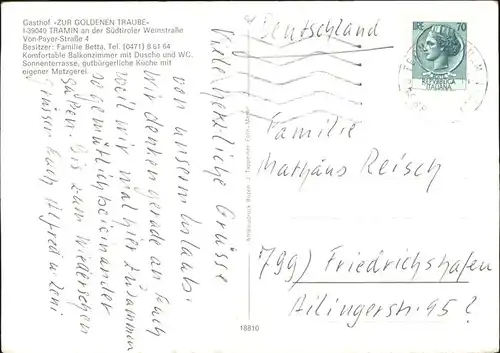 Gasthof »ZUR GOLDENEN TRAUBE«
I-39040 TRAMIN an der Südtiroler Weinstraße
Von-Payer-Straße 4
Besitzer: Familie Betta, Tel. (0471) 8 61 64
Komfortable Balkonzimmer mit Dusche und WC.
Sonnenterrasse, gutbürgerliche Küche mit
eigener Metzgerei.
Viele herzliche Grüsse
von unserm Urlaub.
Wir denken gerade an Euch
weil wir mal hier zusammen
so gemütlich beieinander
saßen. Bis zum Wiedersehen
grüssen Euch Alfred u. Zeni
18810
Deutschland
LIRE 70
REPUBBLICA
ITALIANA
Familie
Mathäus Reisch
799) Friedrichshafen
Ailingerstr. 95?